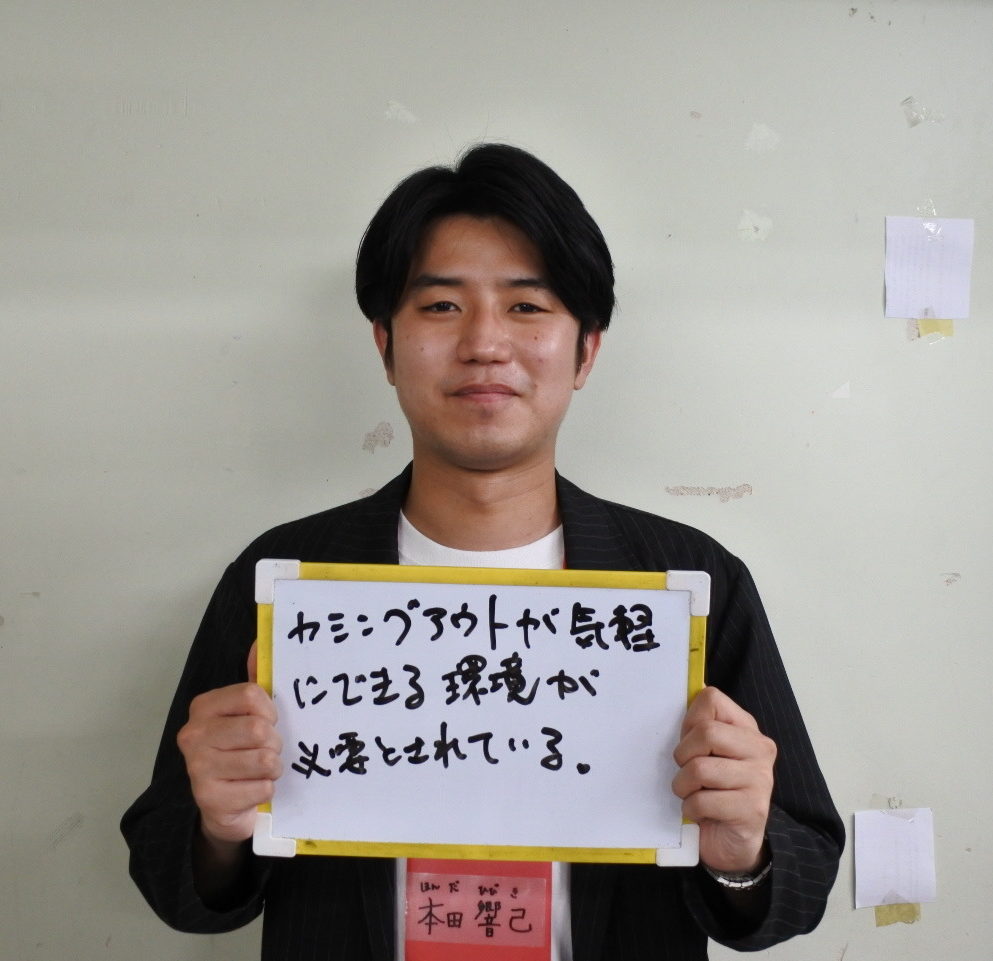 カミングアウトが気軽
にできる環境が
必要とされている。
ほんだ ひびき
本田 響己